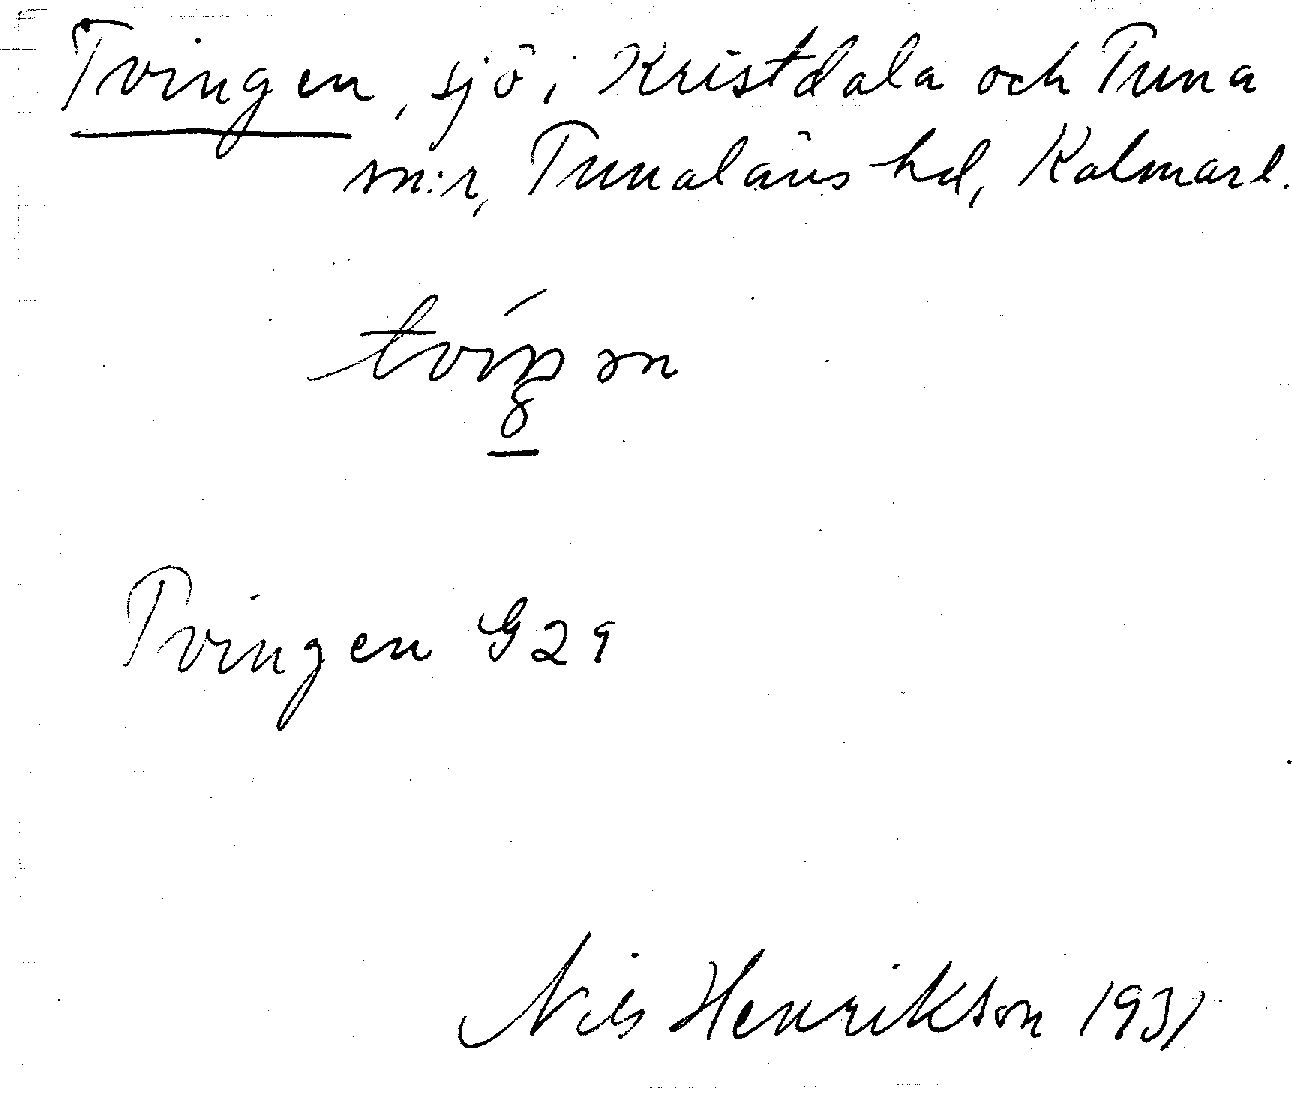 Tvingen, sjö i Kristdala och Tuna
sn:r, Tunaläns hd, Kalmar l.
Tvingen G29
Nils Henrikson 1931